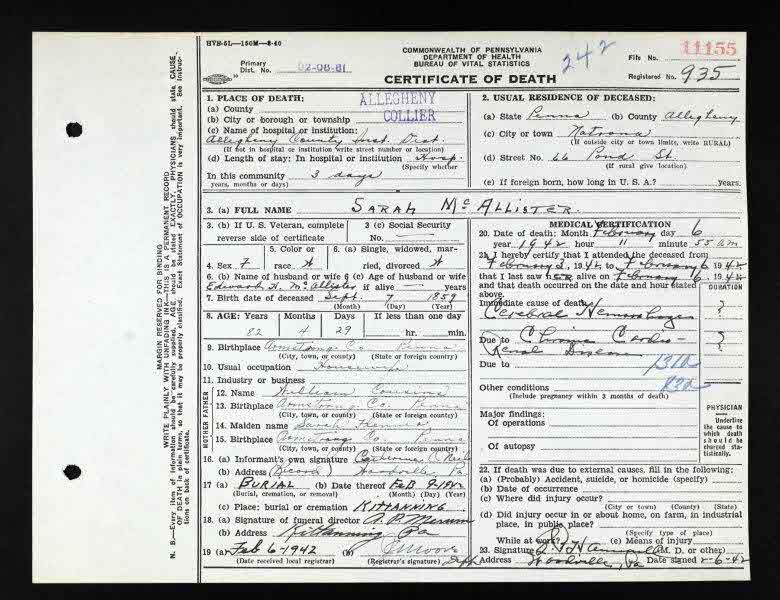 HVB-5L—150M—8-40
Primary Dist. No. 02-08-81
COMMONWEALTH OF PENNSYLVANIA
DEPARTMENT OF HEALTH
BUREAU OF VITAL STATISTICS
CERTIFICATE OF DEATH
242
File No. 11155
Registered No. 935
MARGIN RESERVED FOR BINDING
WRITE PLAINLY WITH UNFADING INK—THIS IS A PERMANENT RECORD
N. B.—Every item of information should be carefully supplied. AGE should be stated EXACTLY. PHYSICIANS should state CAUSE OF DEATH in plain terms, so that it may be properly classified. Exact Statement of OCCUPATION is very important. See Instructions on back of certificate.
1. PLACE OF DEATH:
(a) County ALLEGHENY
(b) City or borough or township COLLIER
(c) Name of hospital or institution:
Allegheny County Inst. Dist.
(If not in hospital or institution write street number or location)
(d) Length of stay: In hospital or institution Hosp.
(Specify whether
In this community 3 days
years, months or days)
2. USUAL RESIDENCE OF DECEASED:
(a) State Penna (b) County Allegheny
(c) City or town Natrona
(If outside city or town limits, write RURAL)
(d) Street No. 66 Pond St.
(If rural give location)
(e) If foreign born, how long in U. S. A.? years.
3. (a) FULL NAME SARAH McALLISTER.
3. (b) If U. S. Veteran, complete reverse side of certificate
3 (c) Social Security No. —
4. Sex F
5. Color or race W
6. (a) Single, widowed, married, divorced W
6. (b) Name of husband or wife
Edward H. McAllister
6 (c) Age of husband or wife if alive — years
7. Birth date of deceased Sept. 7 1859
(Month) (Day) (Year)
8. AGE: Years Months Days If less than one day
82 4 29 hr. min.
9. Birthplace Armstrong Co. Penna
(City, town, or county) (State or foreign country)
10. Usual occupation Housewife
11. Industry or business
FATHER
12. Name William Cousins
13. Birthplace Armstrong Co. Penna
(City, town, or county) (State or foreign country)
MOTHER
14. Maiden name Sarah
15. Birthplace Armstrong Co. Penna
(City, town, or county) (State or foreign country)
16. (a) Informant's own signature Catherine
(b) Address (Record) Woodville, Pa
17 (a) BURIAL (b) Date thereof FEB 9-1942
(Burial, cremation, or removal) (Month) (Day) (Year)
(c) Place: burial or cremation KITTANNING
18. (a) Signature of funeral director
(b) Address Kittanning Pa
19 (a) Feb 6-1942 (b) Moore
(Date received local registrar) (Registrar's signature)
MEDICAL CERTIFICATION
20. Date of death: Month February day 6
year 1942 hour 11 minute 55 am
21. I hereby certify that I attended the deceased from
February 3, 1942 to February 6 1942
that I last saw her alive on February 6, 1942
and that death occurred on the date and hour stated above.
DURATION
Immediate cause of death
Cerebral Hemorrhage ?
Due to Chronic Cardio-Renal Disease ?
Due to
131a
83a
Other conditions
(Include pregnancy within 3 months of death)
Major findings:
Of operations
Of autopsy
PHYSICIAN
Underline the cause to which death should be charged statistically.
22. If death was due to external causes, fill in the following:
(a) (Probably) Accident, suicide, or homicide (specify)
(b) Date of occurrence
(c) Where did injury occur?
(City or town) (County) (State)
(d) Did injury occur in or about home, on farm, in industrial place, in public place?
(Specify type of place)
While at work? (e) Means of injury
23. Signature (M. D. or other)
Address Woodville, Pa Date signed 2-6-42